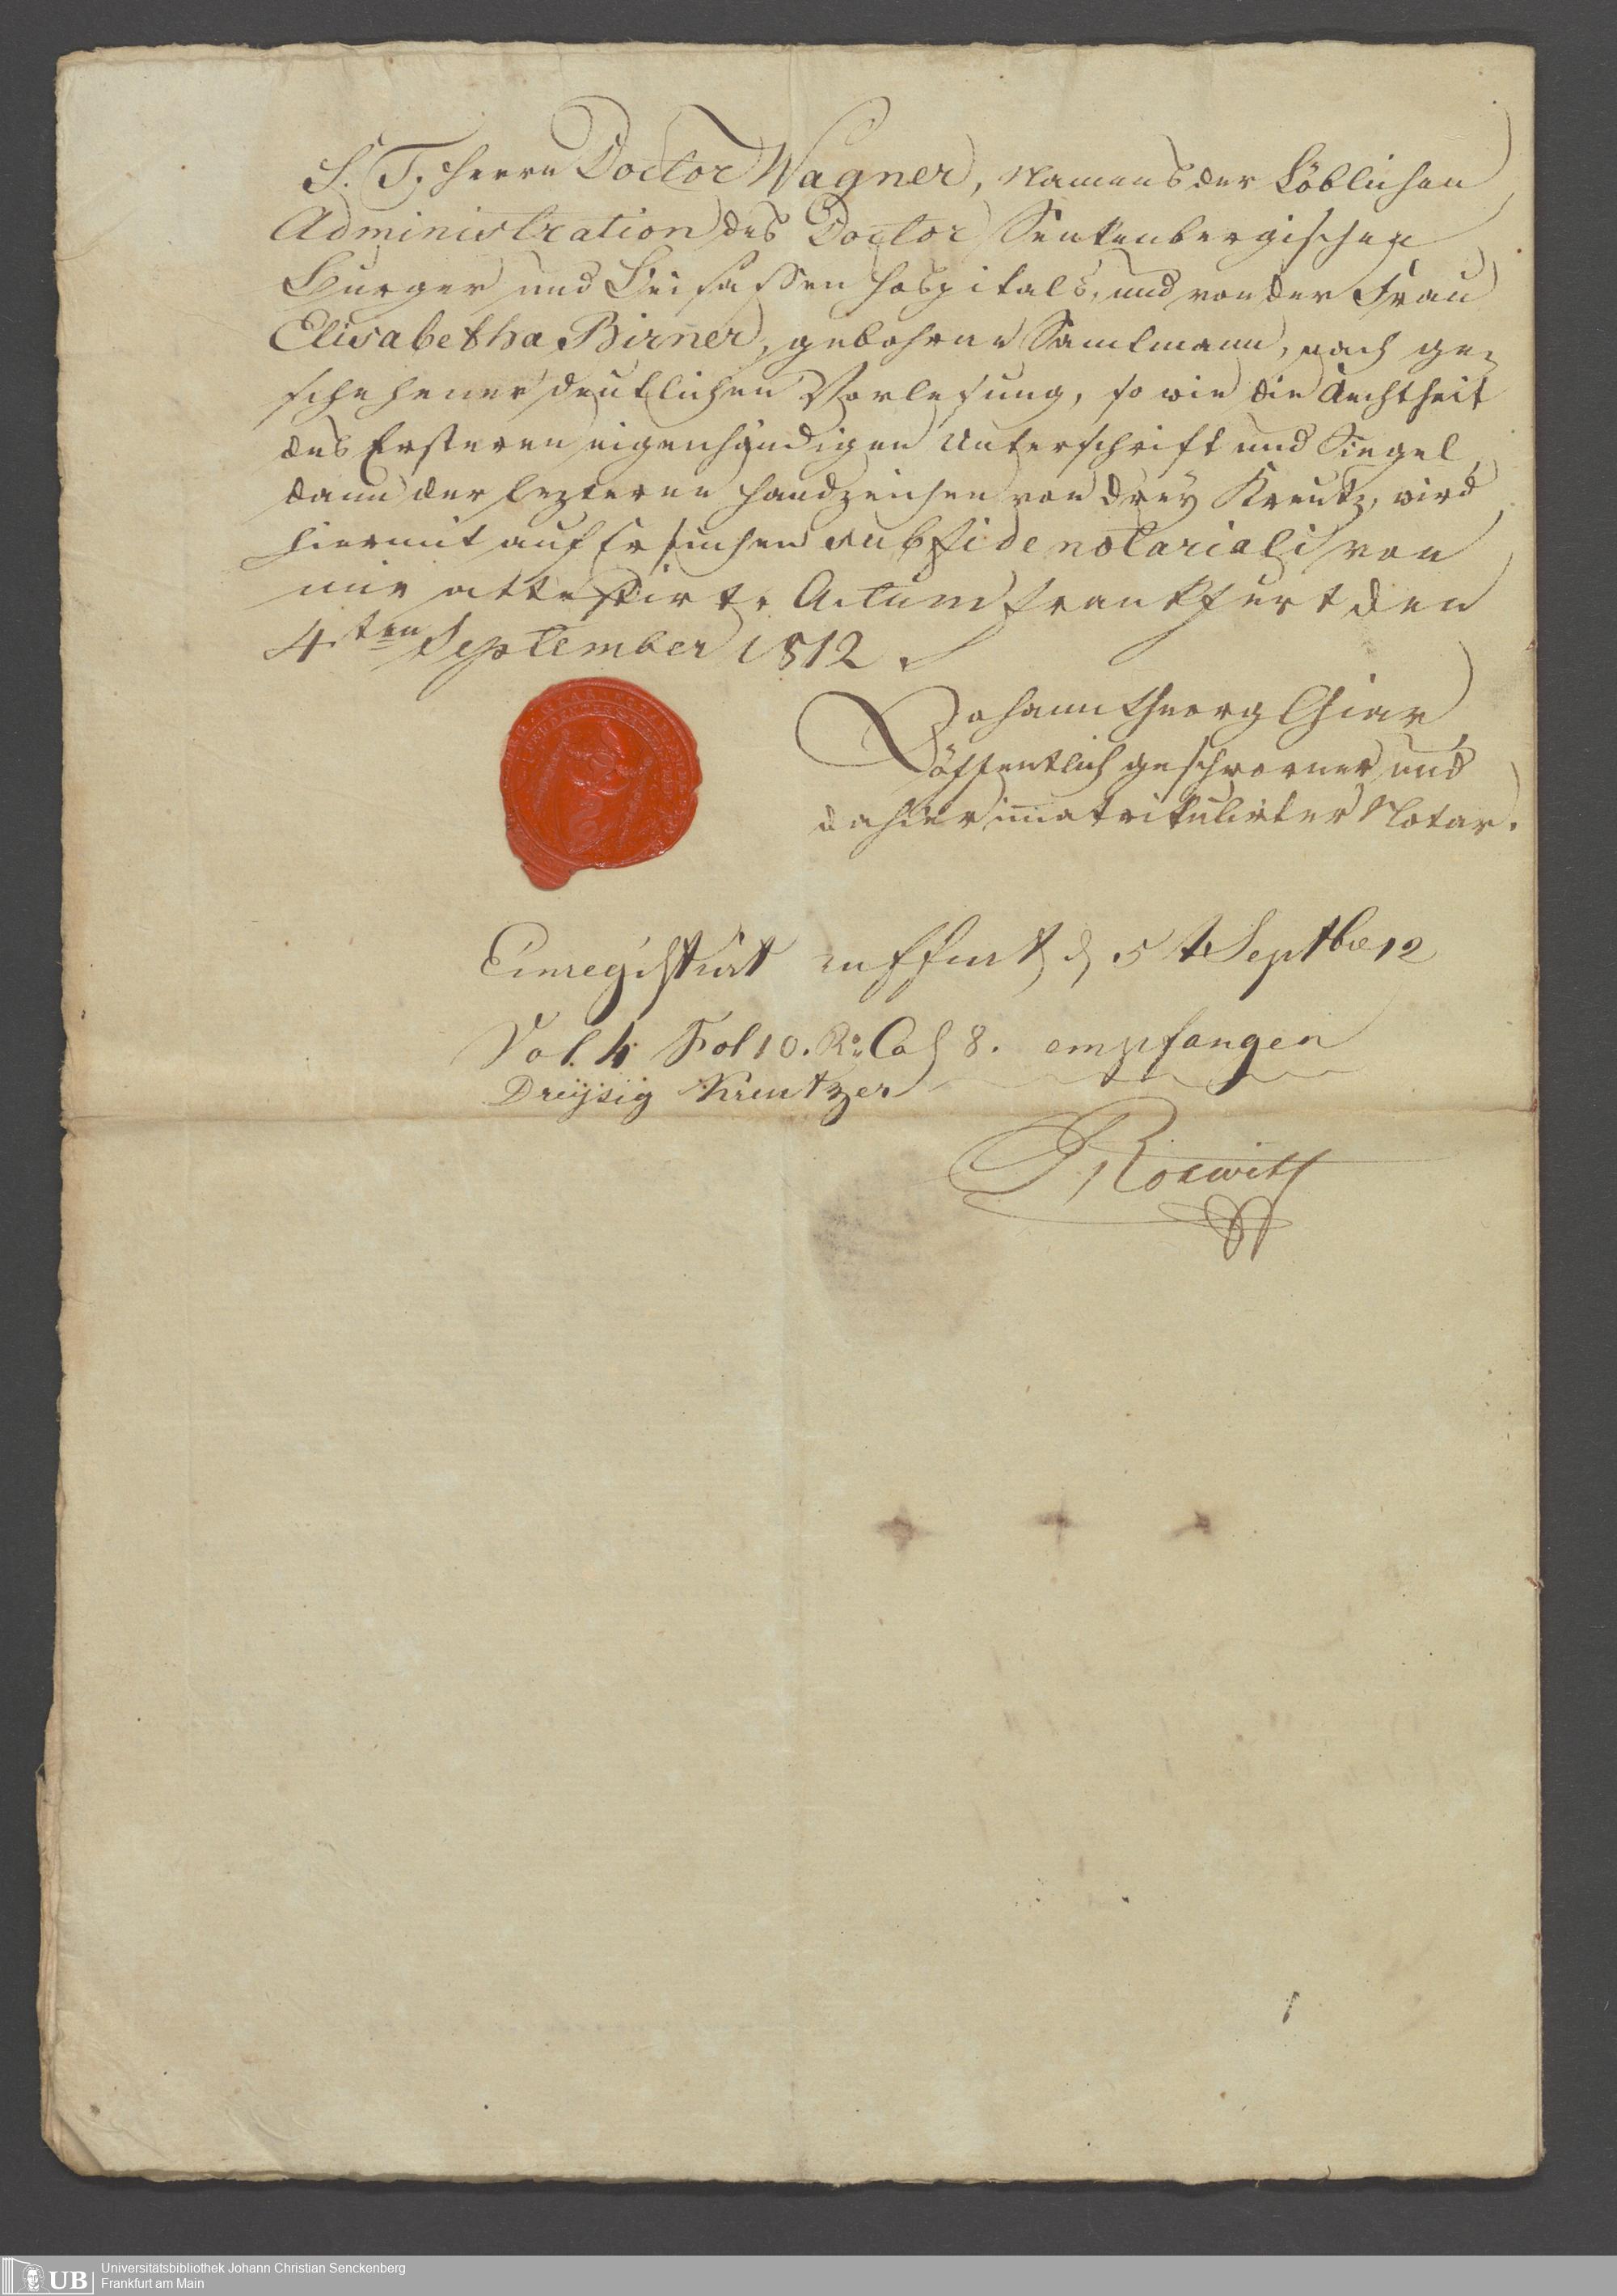 S. T. Herrn Doctor Wagner, Namens der Löblichen
Administration des Doctor Senkenbergischen
Burger und Beisassen Hospitals, und von der Frau
Elisabetha Birner, gebohrne Samlmann, nach ge-
schehener deutlichen Vorlesung, so wie die Aechtheit
des Ersteren eigenhändigen Unterschrift und Siegel,
dann der lezteren Handzeichen von drey Kreutz, wird
hiermit auf Ersuchen sub fide notariali von
mir attestirt. Actum Frankfurt den
4ten September 1812.
Johann Georg
öffentlich geschworner und
dahier immatrikulirter Notar.
Einregistrirt zu ffurt d 5 t Septbr 12
Vol. 4 Fol 10. Ro Cas 8. empfangen
Dreysig Kreutzer
Universitätsbibliothek Johann Christian Senckenberg
Frankfurt am Main
UB